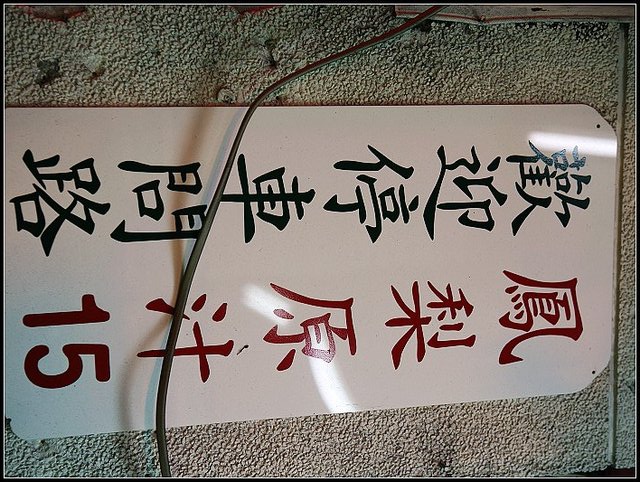 鳳梨原汁15
歡迎停車問路